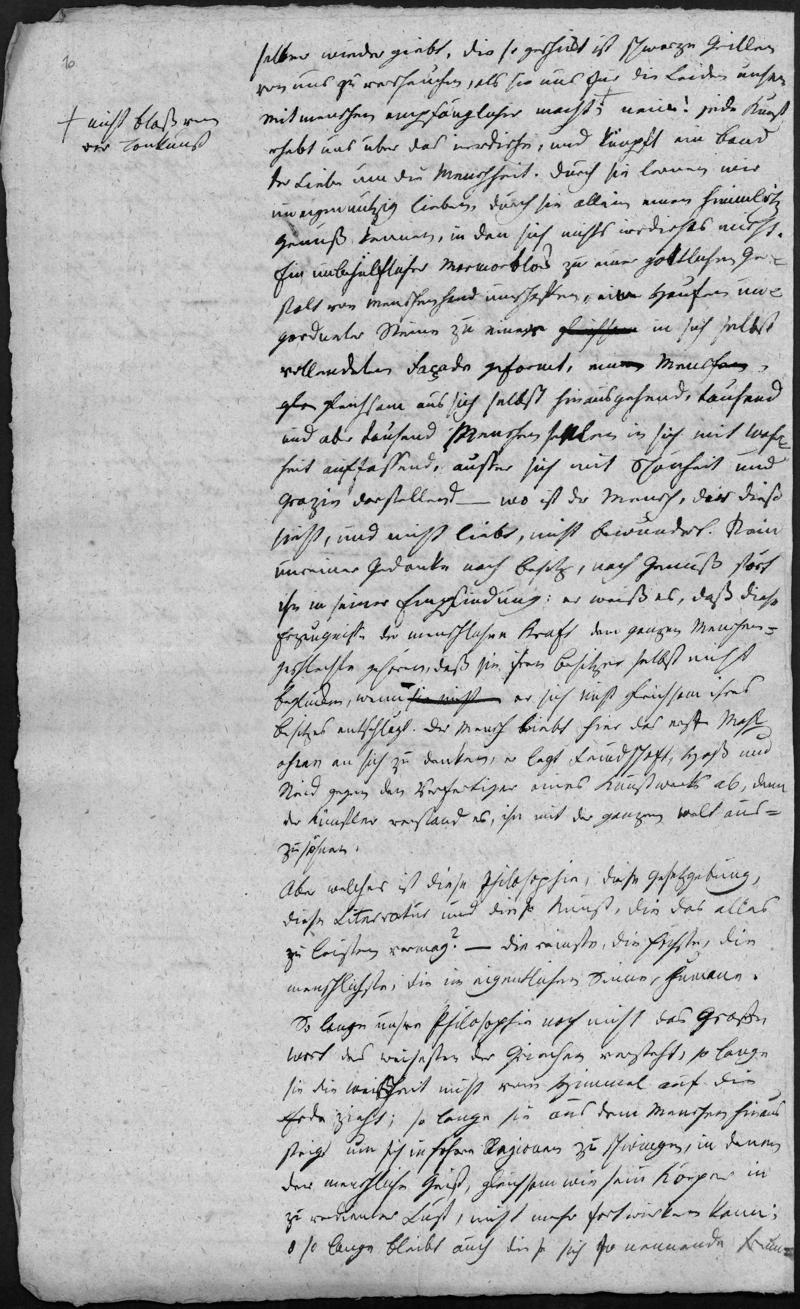 selber wieder giebt, die so geschickt ist schwarze Grillen
von uns zu verscheuchen, als sie uns für die Leiden unsrer
Mitmenschen empfänglicher macht? + nein! jede Kunst
+ nicht bloß von
der Tonkunst
erhebt uns über das irrdische, und knüpft ein Band
der Liebe um die Menschheit. Durch sie lernen wir
uneigennützig lieben, durch sie allein einen himmlisch
Genuß kennen, in den sich nichts irrdisches mischt.
Ein unbehülflicher Marmorblock zu einer göttlichen Ge-
stalt von Menschenhand umschaffen, ein Haufen un-
geordneter Steine zu einer in sich selbst
vollendeten Façade geformt, ein Mensch,
gleichsam aus sich selbst hinausgehend, tausend
und aber tausend Menschen in sich mit Wahr-
heit auffassend, ausser sich mit Schönheit und
Grazie darstellend — wo ist der Mensch, der diese
sieht, und nicht liebt, nicht bewundert. Kein
unreiner Gedanke nach Besitz, nach Genuß stört
ihn in seiner Empfindung: er weiß es, daß diese
Erzeugnisse der menschlichen Kraft dem ganzen Menschen-
geschlechte gehören, daß sie ihren Besitzer selbst nicht
beglücken, wenn er sich nicht gleichsam ihres
Besitzes entschlägt. Der Mensch liebt hier das erste Mahl
ohne an sich zu denken, er legt Feindschaft, Haß und
Neid gegen den Verfertiger eines Kunstwerks ab, denn
der Künstler verstand es, ihn mit der ganzen Welt aus-
zusöhnen.
Aber welches ist diese Philosophie, diese Gesetzgebung,
diese Literratur und diese Kunst, die das alles
zu leisten vermag? — die reinste, die höchste, die
menschlichste, die im eigentlichen Sinne, humane.
So lange unsre Philosophie noch nicht das Große
Wort des weisesten der Griechen versteht, so lange
sie die Weißheit nicht vom Himmel auf die
Erde zieht; so lange sie aus dem Menschen hinaus
steigt um sich in höhere Regionen zu schwingen, in denen
der menschliche Geist, gleichsam wie sein Körper in
zu verdünnter Luft, nicht mehr fortwirken kann;
so lange bleibt auch die sich so nennende